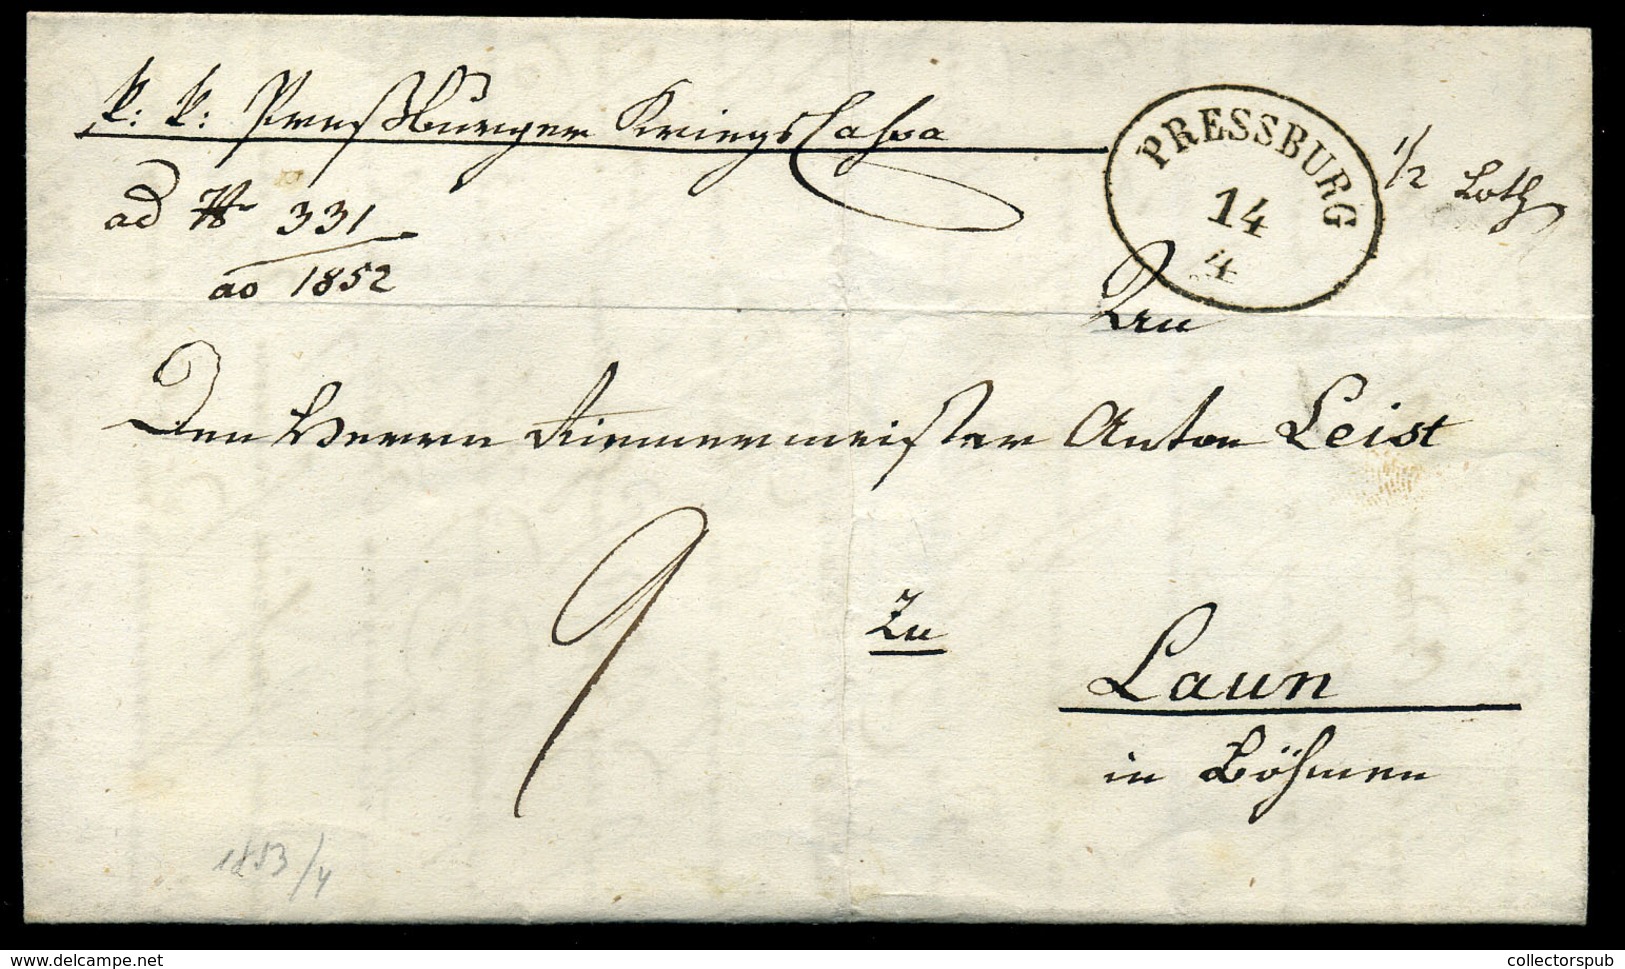 k: k: Preßburger Kriegs Cassa
ad Nr 331
ao 1852
PRESSBURG
14
4
1/2 Loth
An
Den Herrn Riemermeister Anton Leist
9
Zu
Laun
in Böhmen
1853/4
www.delcampe.net
collectorspub